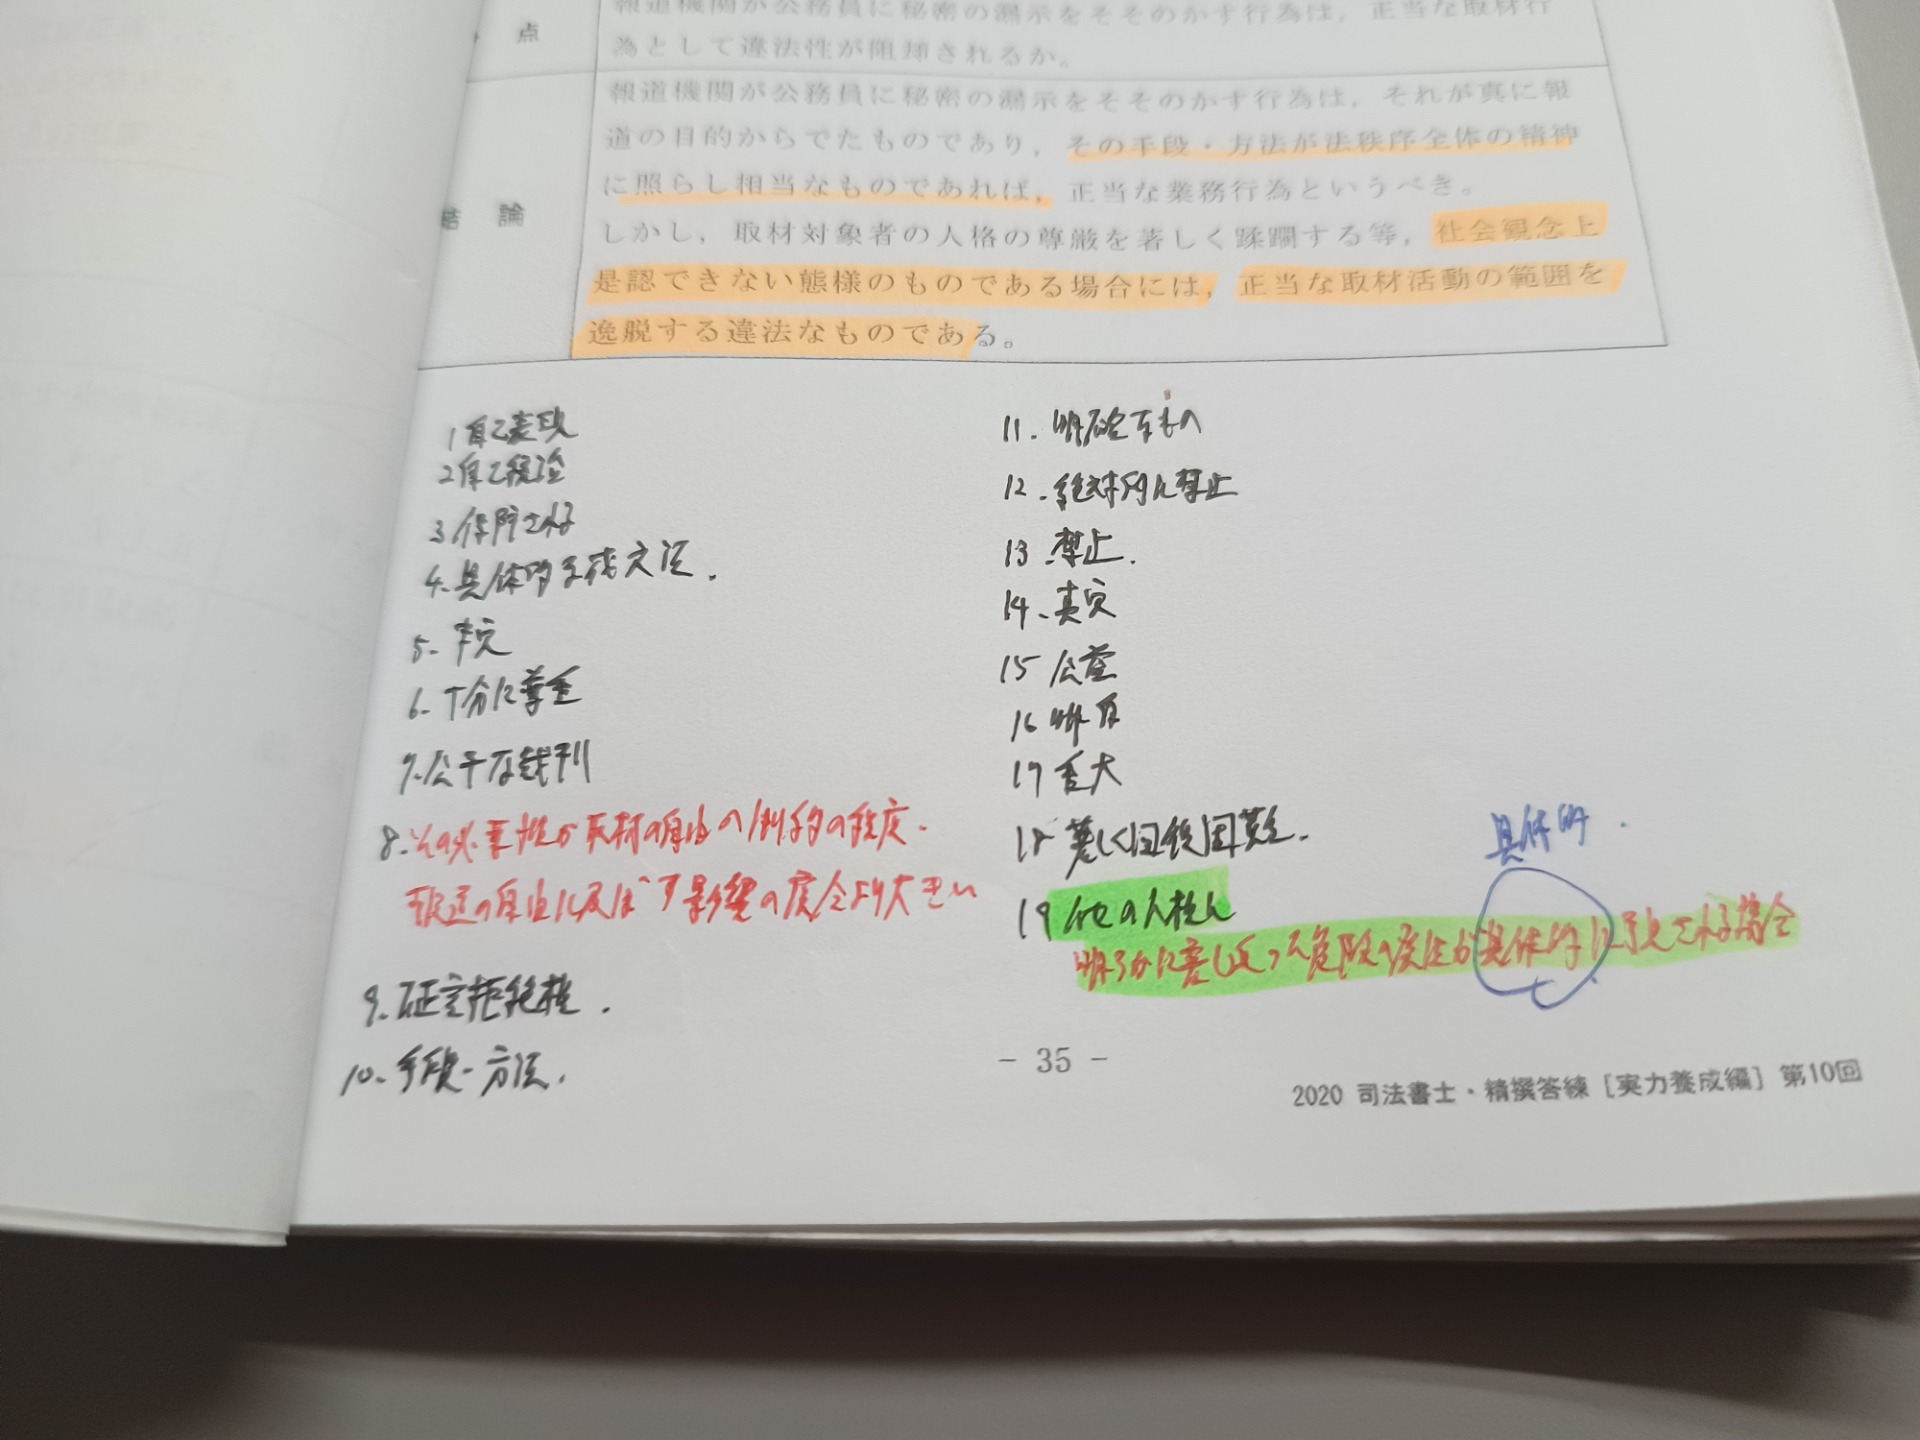 点
報道機関が公務員に秘密の漏示をそそのかす行為は，正当な取材行
為として違法性が阻却されるか。
結論
報道機関が公務員に秘密の漏示をそそのかす行為は，それが真に報
道の目的からでたものであり，その手段・方法が法秩序全体の精神
に照らし相当なものであれば，正当な業務行為というべき。
しかし，取材対象者の人格の尊厳を著しく蹂躙する等，社会観念上
是認できない態様のものである場合には，正当な取材活動の範囲を
逸脱する違法なものである。
1 自己表現
2 自己統治
3 保障される
4. 具体的な方法.
5-
6- 十分に尊重
7. 公平な裁判
8. その必要性が取材の自由への制約の程度.
報道の自由に及ぼす影響の度合より大きい
9. 証言拒絶権.
10. 手段・方法.
11. 明確なもの
12. 絶対的に禁止
13. 禁止.
14. 真実
15 公益
16 明白
17 重大
18 著しく回復困難.
19 他の人権
明らかに差し迫った危険の発生が具体的に予見される場合
具体的.
- 35 -
2020 司法書士・精撰答練［実力養成編］第10回